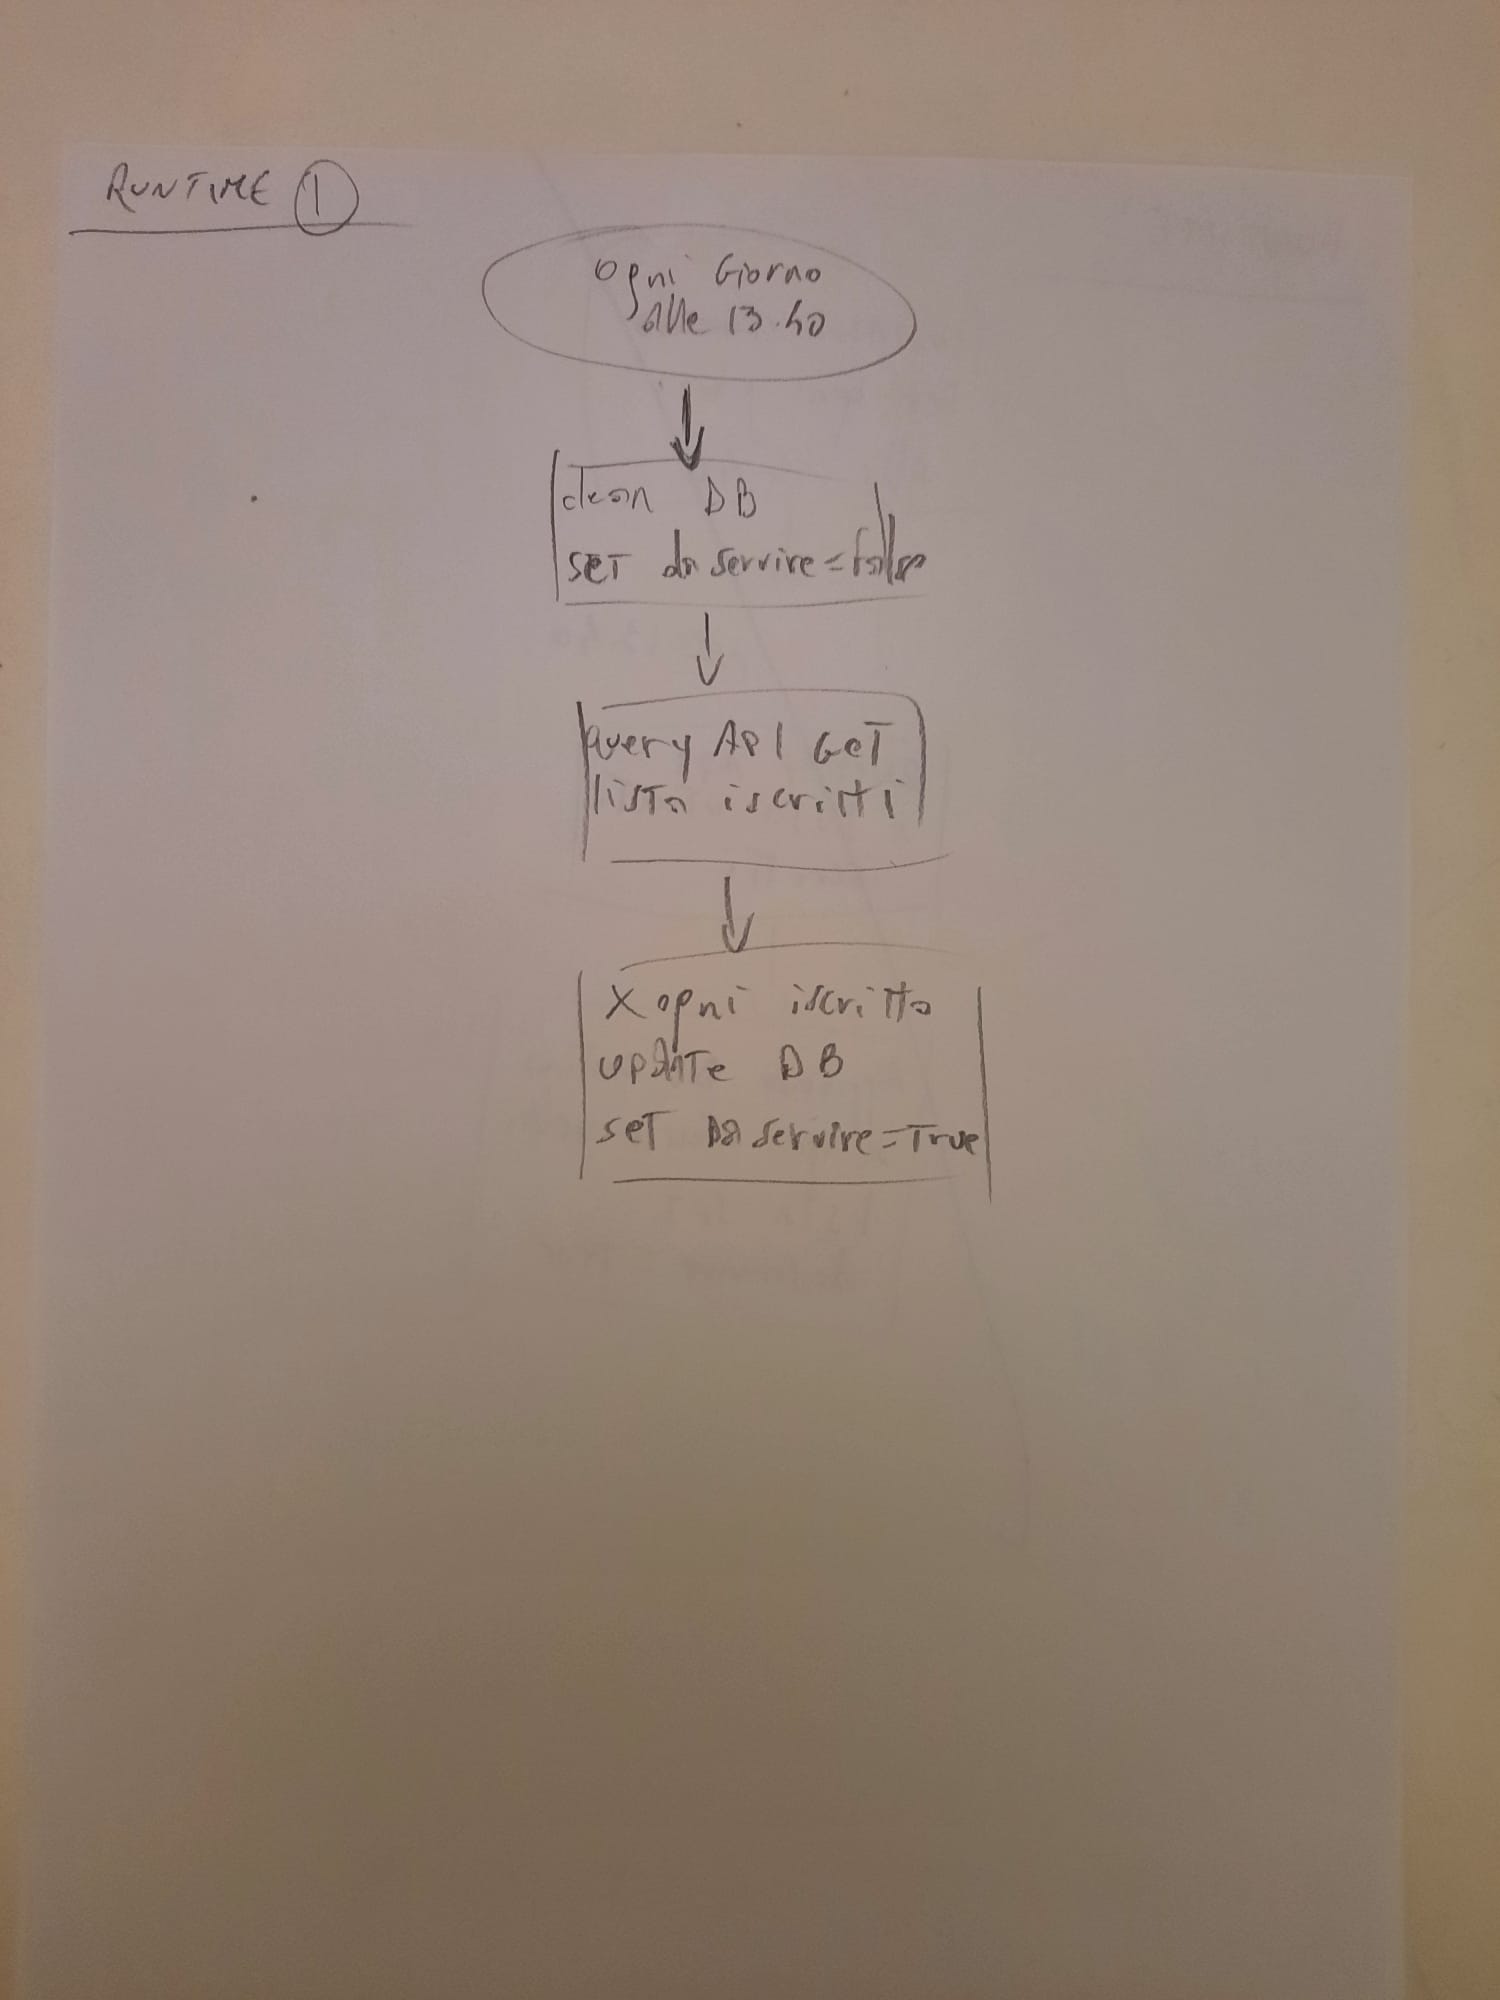 RUNTIME 1
ogni Giorno
alle 13.40
clean DB
SET da servire=false
query API GET
lista iscritti
X ogni iscritto
update DB
set Da servire=True